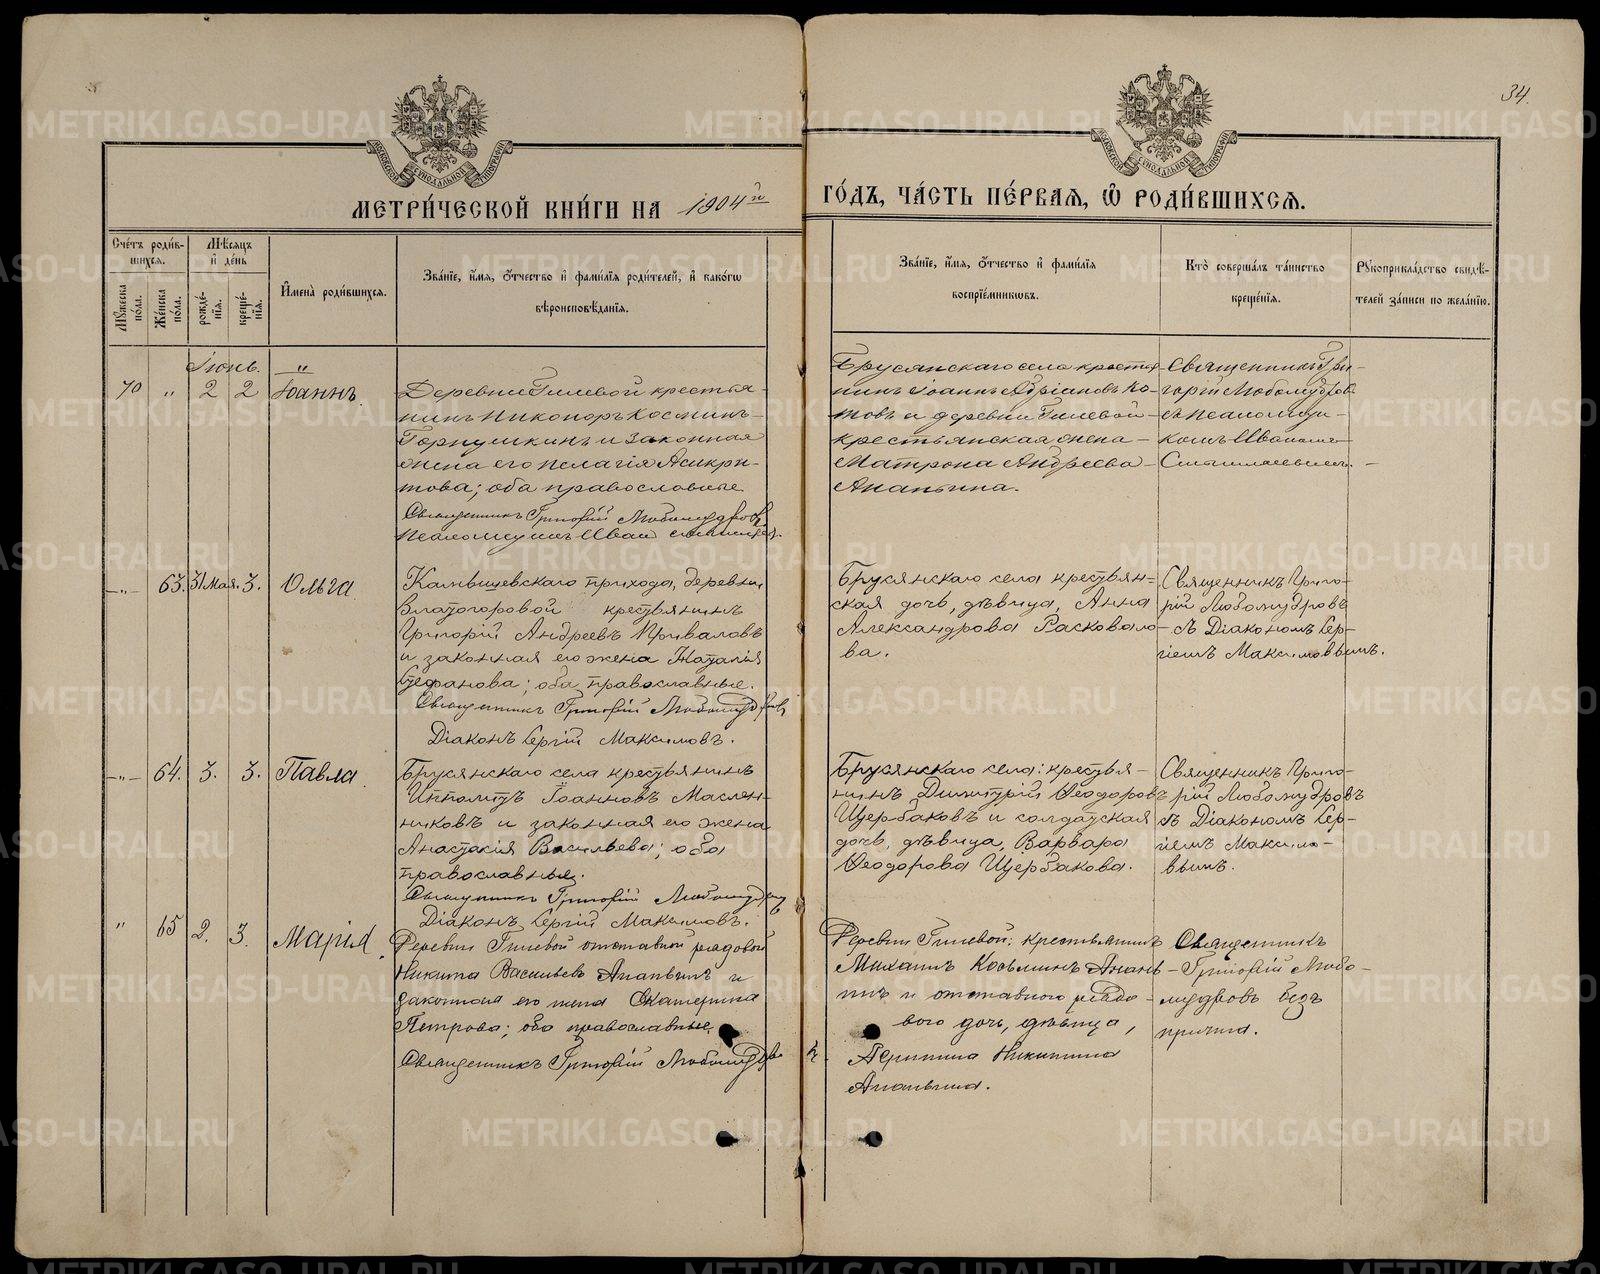 34.
МОСКОВСКОЙ СѴНОДАЛЬНОЙ ТИПОГРАФІИ
МОСКОВСКОЙ СѴНОДАЛЬНОЙ ТИПОГРАФІИ
МЕТРИ́ЧЕСКОЙ КНИ́ГИ НА 1904й ГО́ДЪ, ЧА́СТЬ ПЕ́РВАЯ, Ѽ РОДИ́ВШИХСѦ.
Сче́тъ роди́в-
шихсѧ.
Мꙋ́жеска по́ла.
Же́нска по́ла.
Мѣ́сѧцъ
и҆ де́нь
рожде́-
нїѧ.
креще́-
нїѧ.
И҆мена̀ роди́вшихсѧ.
Зва́нїе, и҆́мѧ, ѻ҆́тчество и҆ фами́лїѧ роди́телей, и҆ како́гѡ
вѣроисповѣ́данїѧ.
Зва́нїе, и҆́мѧ, ѻ҆́тчество и҆ фами́лїѧ
воспрїе́мникѡвъ.
Кто̀ соверша́лъ та́инство
креще́нїѧ.
Рꙋкоприкла́дство свидѣ́-
телей за́писи по жела́нїю.
Іюнь.
70 " 2 2 Іоаннъ.
Деревни Гилевой крестья-
нинъ Никоноръ Космин-
Горнушкинъ и законная
жена его Пелагія Асикри-
това; оба православные.
Священникъ Григорій Любомудровъ.
Псаломщикъ Иван
Брусянскаго села крестья-
нинъ Іоаннъ Адріановъ Ко-
товъ и деревни Гилевой
крестьянская жена
Матрона Андреева
Ананьина.
Священникъ Гри-
горій Любомудров
съ псаломщи-
комъ Иваномъ
— " — 63. 31 Мая. 3. Ольга
Камышевскаго прихода, деревни
Златогоровой крестьянинъ
Григорій Андреевъ Приваловъ
и законная его жена Наталія
Стефанова; оба православные.
Священникъ Григорій Любомудровъ
Діаконъ Сергій Максимовъ.
Брусянскаго села крестьян-
ская дочь, дѣвица, Анна
Александрова Расковало-
ва.
Священникъ Григо-
рій Любомудровъ
съ Діакономъ Сер-
гіемъ Максимовымъ.
— " — 64. 3. 3. Павла
Брусянскаго села крестьянинъ
Ипполитъ Іоанновъ Маслен-
никовъ и законная его жена
Анастасія Васильева; оба
православные.
Священникъ Григорій Любомудровъ
Діаконъ Сергій Максимовъ.
Брусянскаго села: крестья-
нинъ Димитрій Ѳеодоровъ
Щербаковъ и солдатская
дочь, дѣвица, Варвара
Ѳеодорова Щербакова.
Священникъ Григо-
рій Любомудровъ
съ Діакономъ Сер-
гіемъ Максимо-
вымъ.
" 65 2. 3. Марія.
Деревни Гилевой отставной рядовой
Никита Васильевъ Ананьинъ и
законная его жена Екатерина
Петрова; оба православные.
Священникъ Григорій Любомудровъ
Деревни Гилевой: крестьянинъ
Михаилъ Козьминъ Анань-
инъ и отставного рядо-
вого дочь, дѣвица,
Никитина
Ананьина.
Священникъ
Григорій Любо-
мудровъ безъ
причта.
METRIKI.GASO-URAL.RU